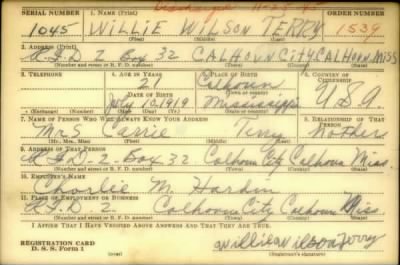 Discharge 11-25-45
SERIAL NUMBER 1. NAME (Print) ORDER NUMBER
1045 WILLIE WILSON TERRY 1539
(First) (Middle) (Last)
2. ADDRESS (Print)
R.F.D-2-Box 32 CALHOUN CITY CALHOUN MISS
(Number and street or R. F. D. number) (Town) (County) (State)
3. TELEPHONE 4. AGE IN YEARS 5. PLACE OF BIRTH 6. COUNTRY OF CITIZENSHIP
21 Calhoun
DATE OF BIRTH (Town or county)
July 10, 1919 Mississippi U.S.A.
(Exchange) (Number) (Mo.) (Day) (Yr.) (State or country)
7. NAME OF PERSON WHO WILL ALWAYS KNOW YOUR ADDRESS 8. RELATIONSHIP OF THAT PERSON
Mrs Carrie Terry Mother
(Mr., Mrs., Miss) (First) (Middle) (Last)
9. ADDRESS OF THAT PERSON
R.F.D-2-Box 32 Calhoun City Calhoun Miss.
(Number and street or R. F. D. number) (Town) (County) (State)
10. EMPLOYER'S NAME
Charlie M. Hardin
11. PLACE OF EMPLOYMENT OR BUSINESS
R.F.D-2. Calhoun City Calhoun Miss.
(Number and street or R. F. D. number) (Town) (County) (State)
I AFFIRM THAT I HAVE VERIFIED ABOVE ANSWERS AND THAT THEY ARE TRUE.
REGISTRATION CARD
D. S. S. Form 1
willie wilson Terry
(Registrant's signature)